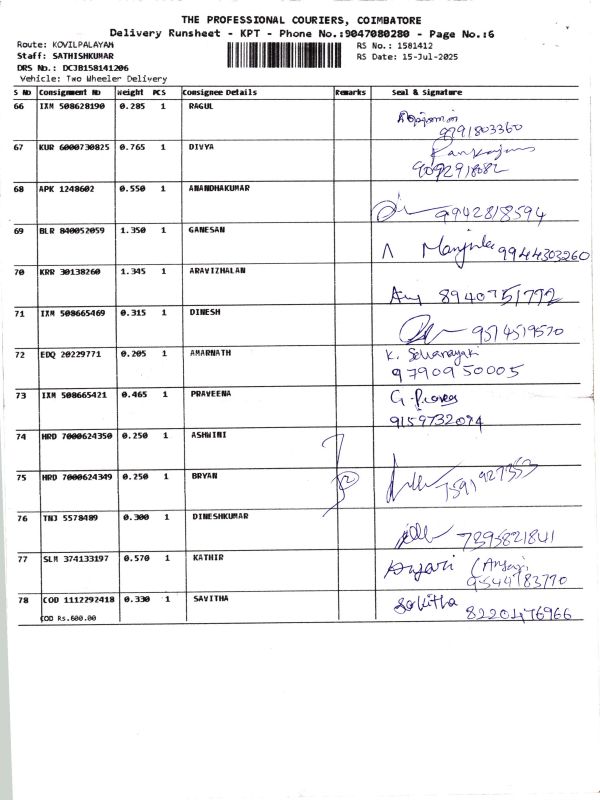 THE PROFESSIONAL COURIERS, COIMBATORE
Delivery Runsheet - KPT - Phone No.:9047080280 - Page No.:6
Route: KOVILPALAYAM
RS No.: 1581412
Staff: SATHISHKUMAR
RS Date: 15-Jul-2025
DRS No.: DCJB158141206
Vehicle: Two Wheeler Delivery
S No Consignment No Weight PCS Consignee Details Remarks Seal & Signature
66 IXM 508628190 0.285 1 RAGUL
9791803360
67 KUR 6000730825 0.765 1 DIVYA
9092918082
68 APK 1248602 0.550 1 ANANDHAKUMAR
9942818594
69 BLR 840052059 1.350 1 GANESAN
Manjula 9944303260
70 KRR 30138260 1.345 1 ARAVIZHALAN
8940751792
71 IXM 508665469 0.315 1 DINESH
9514519570
72 EDQ 20229771 0.205 1 AMARNATH K. Selvanayaki
9790950005
73 IXM 508665421 0.465 1 PRAVEENA
9159732094
74 HRD 7000624350 0.250 1 ASHWINI
75 HRD 7000624349 0.250 1 BRYAN
7591927353
76 TNJ 5578489 0.300 1 DINESHKUMAR
7395821841
77 SLM 374133197 0.570 1 KATHIR
9544783770
78 COD 1112292418 0.330 1 SAVITHA Sakitha 8220476966
COD Rs.600.00